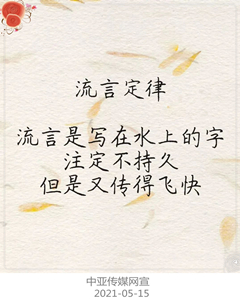 流言定律
流言是写在水上的字
注定不持久
但是又传得飞快
中亚传媒网宣
2021-05-15